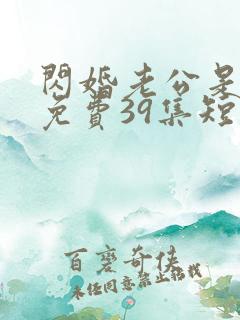 閃婚老公是
免費39集短
奇侠
未经同意禁止转载